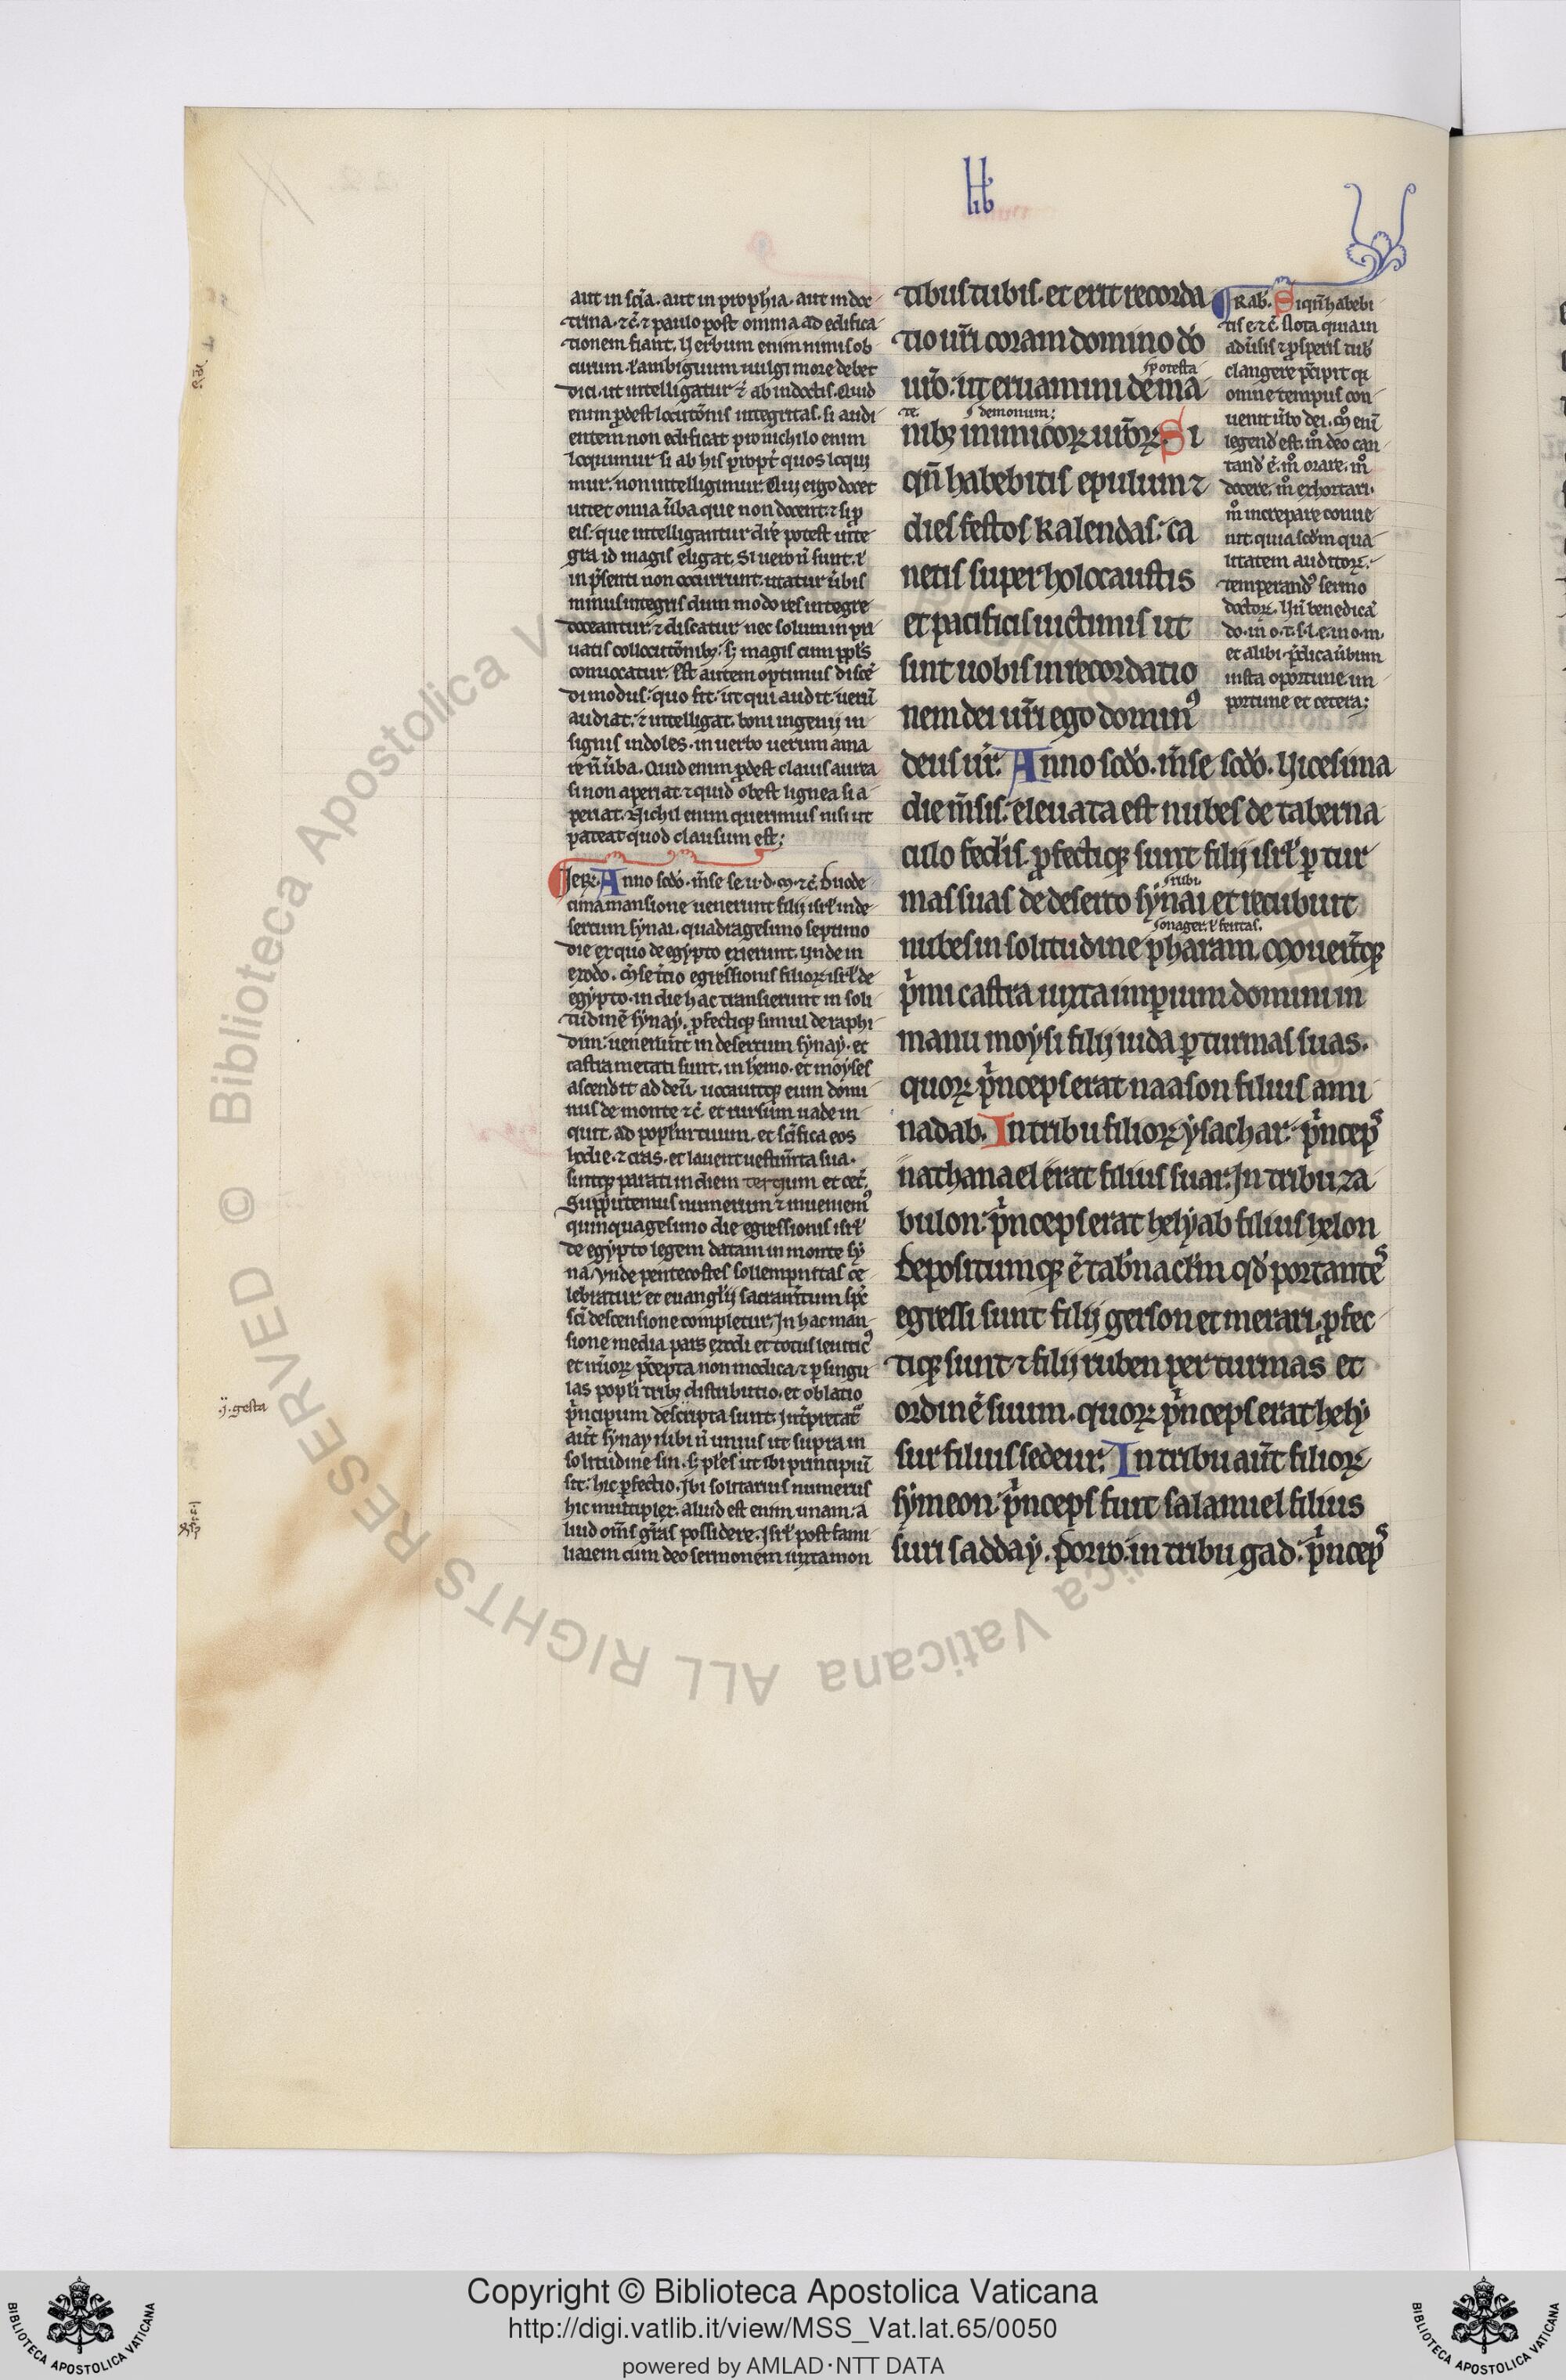 lib
aut in scīa. aut in prophīa. aut in doc
trina. ⁊c̄. ⁊ paulo post omnia ad edifica
tionem fiant. Uerbum enim nimis ob
curum. ł ambiguum uulgi more debet
dici. ut intelligatur ⁊ ab indoctis. Quid
enim ꝓdest locutōnis integritas. si audi
entem non edificat pro nichilo enim
loquimur si ab his propt̄ quos loqui
mur. non intelligimur. Qui ergo docet
uitet om̄ia ūba que non docent. ⁊ si ꝓ
eis. que intelligantur dicē potest inte
gra id magis eligat. Si uero n̄ sunt. ł
in p̄senti non occurrunt. utatur ūbis
minus integris dum modo res integre
doceantur ⁊ discatur nec solum in pri
uatis collocutōnibꝫ. sꝫ magis cum ppl̄s
conuocatur. Est autem optimus disce
di modus. quo fit. ut qui audit. uerū
audiat. ⁊ intelligat. boni ingenij in
signis indoles. in uerbo uerum ama
re n̄ ūba. Quid enim ꝓdest clauis aurea
si non aperiat ⁊ quid obest lignea si a
periat. Nichil enim querimus nisi ut
pateat quod clausum est;
Ierꝰ. Anno scdo. m̄se se. u. d. m. ⁊c̄. Duode
cima mansione uenerunt filij isrł in de
sertum synai. quadragesimo septimo
die ex quo de egypto exierunt. Unde in
exodo. M̄se t̄cio egressionis filioꝝ isrł de
egypto. in die hac transierunt in soli
tudinē synay. ꝓfectiqꝫ simul de raphi
dim. uenerunt in desertum synay. et
castra metati sunt. in heremo. et moyses
ascendit ad deū. uocauitqꝫ eum domi
nus de monte ⁊c̄. et rursum uade in
quit. ad popłm tuum. et sc̄ifica eos
hodie. ⁊ cras. et lauent uestim̄ta sua.
sintqꝫ parati in diem tertium et cet̄.
Supputemus numerum ⁊ inueniemꝰ
quinquagesimo die egressionis isrł
de egypto legem datam in monte sy
na. Vnde pentecostes sollempnitas ce
lebratur. et euangłij sacram̄tum spc̄
sc̄i descensione completur. In hac man
sione media pars exodi et totus leuiticꝰ
et nūoꝝ p̄cepta non modica. ⁊ ꝑ singu
las popłi tribꝫ distributio. et oblatio
p̄ncipum descripta sunt. Int̄pretatʳ
aut̄ synay rubi n̄ unius ut supra in
solitudine sin. sꝫ ples̄ ut ibi principiū
sit. hic ꝑfectio. Ibi solitarius numerus
hic multiplex. aliud est enim unam. a
liud om̄s gr̄as possidere. Isrł post fami
liarem cum deo sermonem iuxta mon
tibus tubis. et erit recorda
tio ur̄i coram domino do
potesta
ur̄o. ut eruamini de ma
te. demonum;
nibꝫ inimicoꝝ uir̄oꝝ. Si
qn̄ habebitis epulum ⁊
dies festos kalendas. ca
netis super holocaustis
et pacificis uictimis ut
sint uobis in recordatio
nem dei ur̄i ego dominꝰ
deus ur̄. Anno scdo. m̄se scdo. Uicesima
die m̄sis. eleuata est nubes de taberna
culo fed̄is. ꝓfectiqꝫ sunt filij isrł ꝑ tur
rubi.
mas suas de deserto synai et recubuit
onager. ł feritas.
nubes in solitudine pharam. Mouer̄tqꝫ
p̄mi castra iuxta imperium domini in
manu moysi filij iuda ꝑ turmas suas.
quoꝝ p̄nceps erat naason filius ami
nadab. In tribu filioꝝ ysachar. p̄ncepˢ
nathanael erat filius suar. In tribu za
bulon. p̄nceps erat helyab filius helon
Depositumqꝫ ē tab̄nacłm qd̄ portanteˢ
egressi sunt filij gerson et merari. ꝓfec
tiqꝫ sunt ⁊ filij ruben per turmas et
ordinē suum. quoꝝ p̄nceps erat hely
sur filius sedeur. In tribu aut̄ filioꝝ
symeon. p̄nceps fuit salamuel filius
suri sadday. Porro. in tribu gad. p̄ncepˢ
Rab. Si qn̄ habebi
tis e. ⁊c̄. Nota quia in
adūsis ⁊ ꝓsperis tub
clangere p̄cipit qꝛ
omne tempus con
uenit ūbo dei. Mº enī
legend̄ est. mº deo can
tand̄ ē. mº orare. mº
docere. mº exhortari.
mº increpare conue
nit. quia scdm qua
litatem auditoꝝ.
temperandꝰ sermo
doctoꝝ. Un̄ benedica
do. in o. t. s. l. e. in o. m.
et alibi p̄dica ūbum
insta oportune. in
portune et cetera;
ÿ. gesta